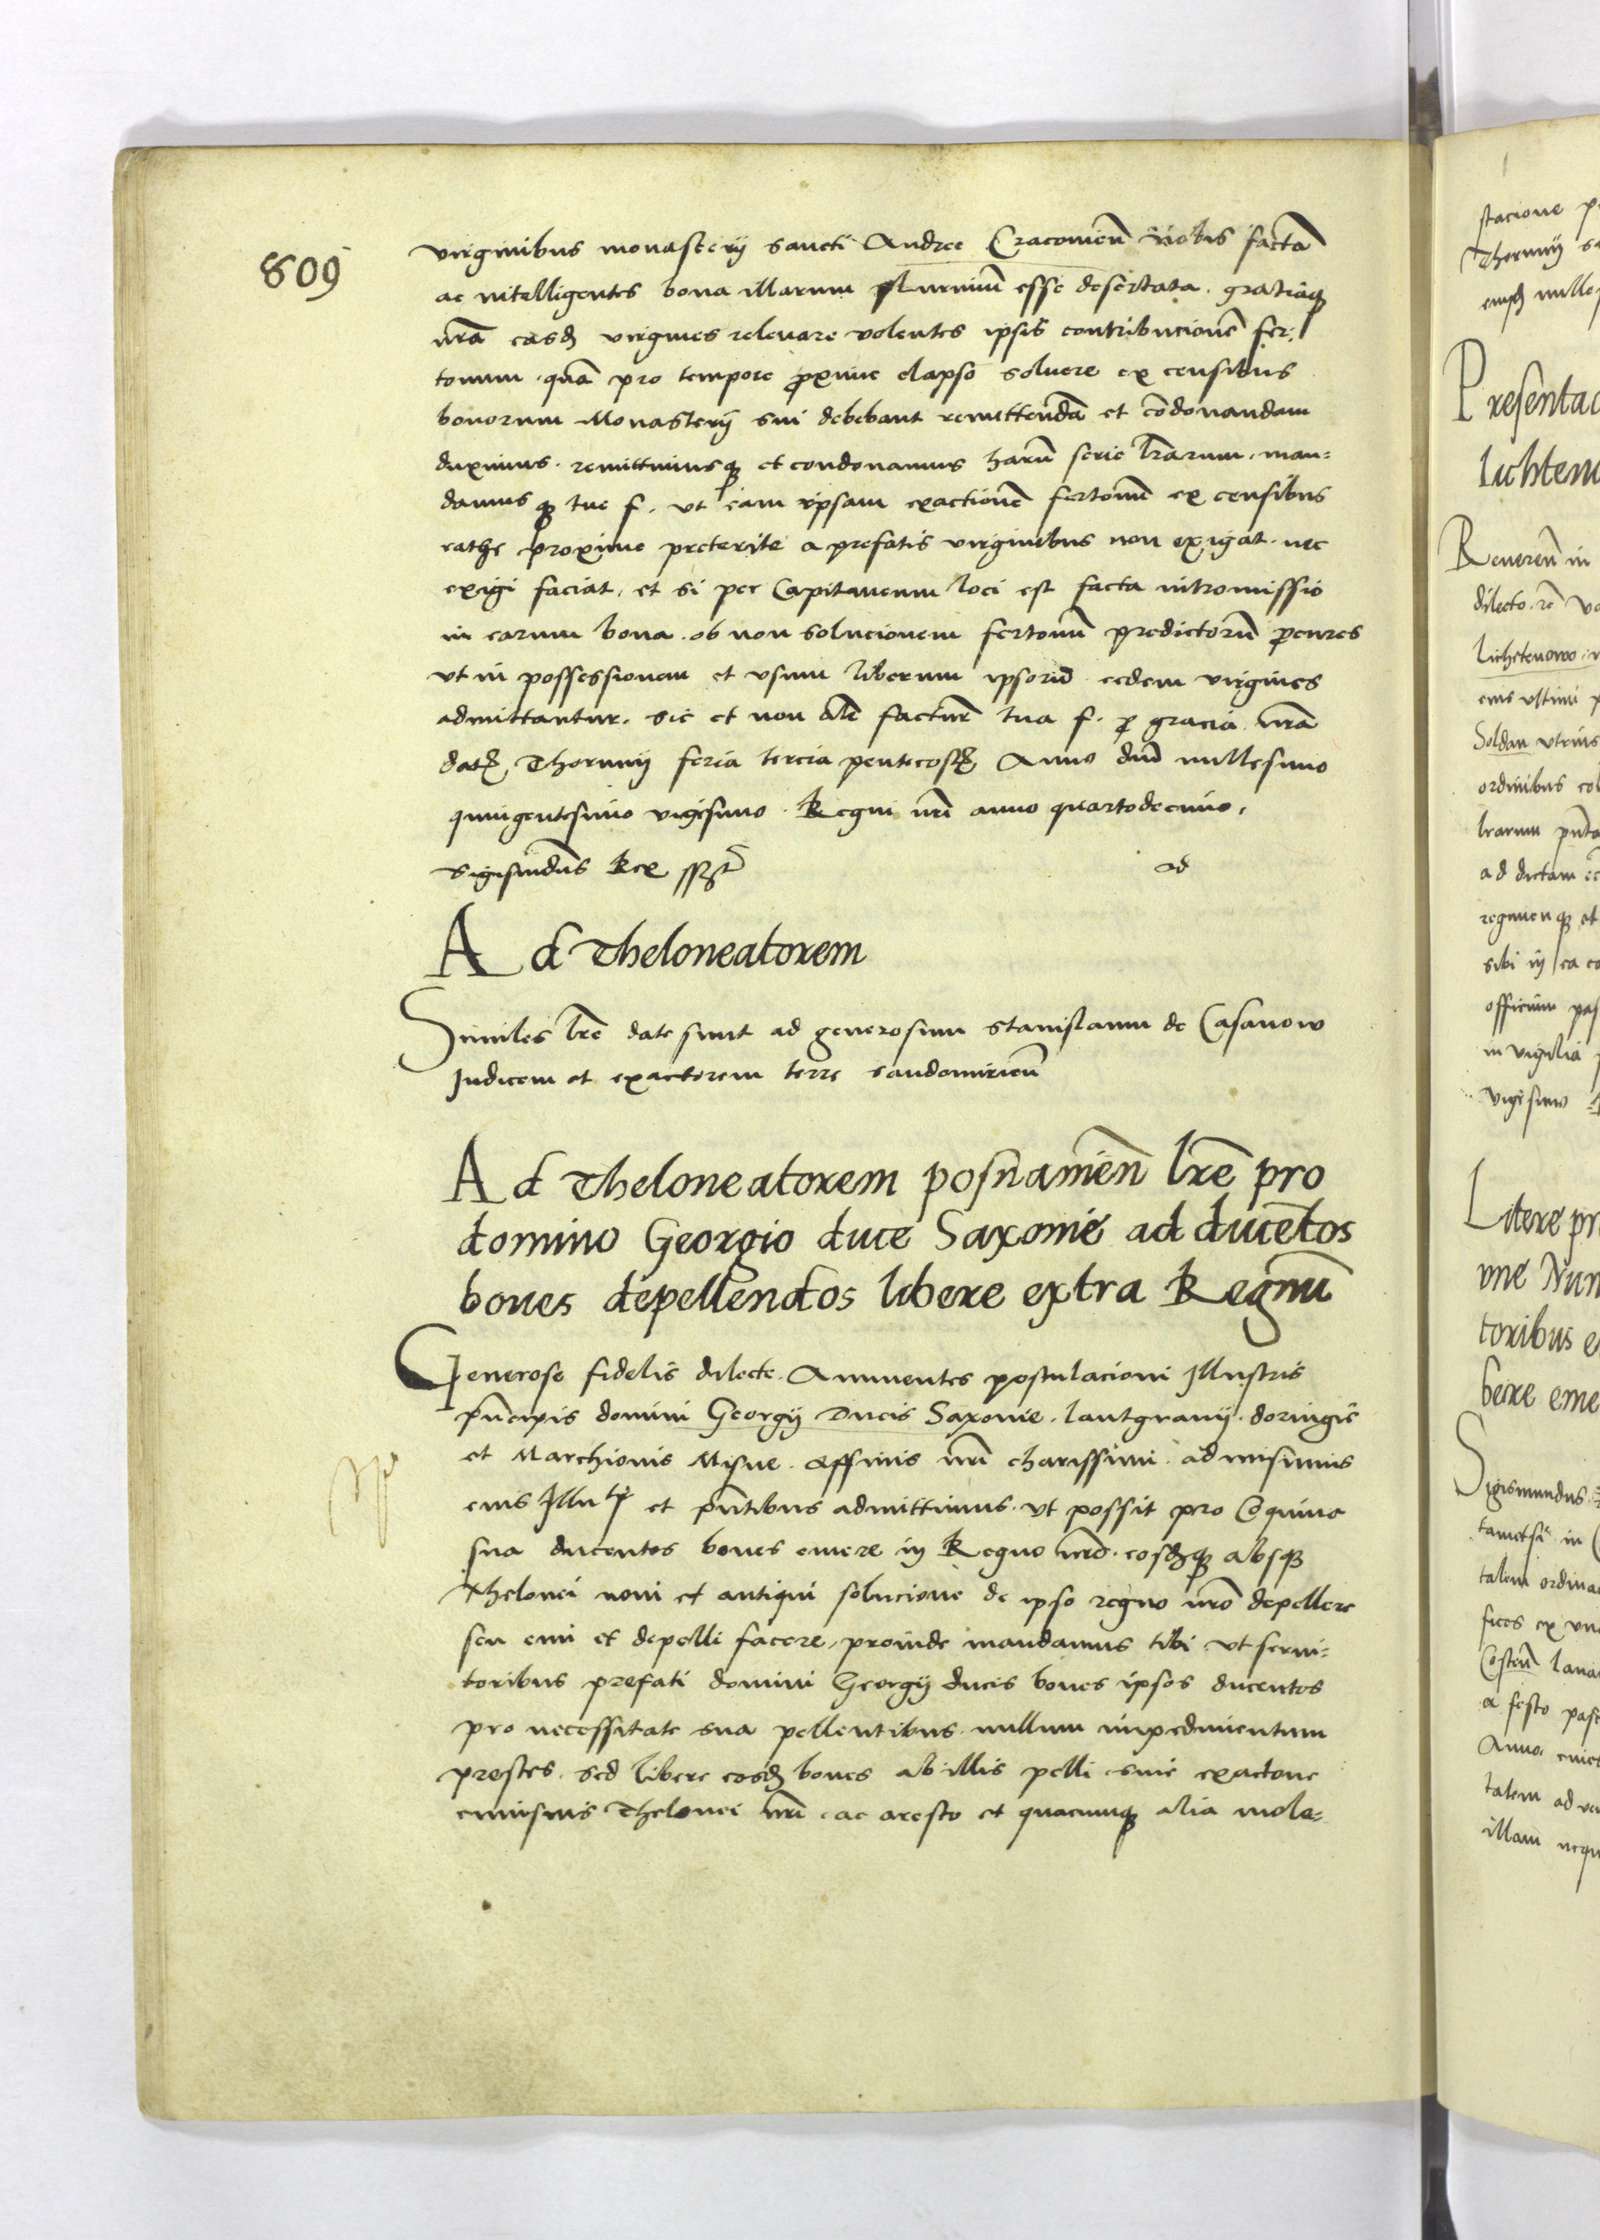 809
virginibus monasterij sancti Andree Cracovien̄ nobis factā
ac intelligentes bona illarum plurimū esse desertata . gratiaq̄
nr̄a easd̄ virgines relevare volentes ipsis contribucionē fer-
tonum . quā pro tempore proxime elapso solvere ex censibus
bonorum Monasterij sui debebant remittendā et cōdonandam
duximus . remittimusq̄ et condonamus harū serie lr̄arum . man-
damusq̄ tue f . ut eam ipsam exactionē fertonū ex censibus
rathe proxime preterite a prefatis virginibus non exigat . nec
exigi faciat . et si per Capitaneum loci est facta intromissio
in earum bona . ob non solucionem fertonū predictorū p̄cures
ut in possessionem et usum liberum ipsorū eedem virgines
admittantur . sic et non alr̄ facturē tua f . p̄ gracia nr̄a
dat̄ Thorunij feria tercia pentecost̄ Anno dnī millesimo
quingentesimo vigesimo . Regni nr̄i anno quartodecimo .
Sigismūdus Rex sst̄
ad
Ad Theloneatorem
Similes lr̄e date sunt ad generosum Stanislaum de Casanow
Iudicem et exactorem terre Sandomirien̄
Ad Theloneatorem posnamien̄ lr̄e pro
domino Georgio duce Saxonie ad ducētos
boves depellendos libere extra Regnū
Generose fidelis dilecte . Annuentes postulacioni Illustris
prīcipis domini Georgij Ducis Saxonie . lantgravij . doringie
et Marchionis Misne . affinis nr̄i charissimi . admisimus
eius Illu^tj et pn̄tibus admittimus . ut possit pro Coquina
sua ducentos boves emere in Regno nr̄o . eosd̄q̄ absq̄
Thelonei novi et antiqui solucione de ipso regno nr̄o depellere
seu emi et depelli facere . proinde mandamus tibi ut servi-
toribus prefati domini Georgij ducis boves ipsos ducentos
pro necessitate sua pellentibus . nullum impedimentum
prestes . sed libere eosd̄ boves ab illis pelli . sine exactione
cuiusvis Thelonei nr̄i . ac aresto et quacumq̄ alia mole-
stacione
Thorunij
nulle
Presentac
lichten
Reveren̄ in
dilecto
Lichtenow
eius ultimi
Soldan utrius
ordinibus
lr̄arum pn̄ta
ad dictam
regimenq̄ et
sibi in ea
officium pas
in vigilia
vigesimo
Litere pr
une Nun
toribus e
bere eme
Sigismundus
tametsi in
talem ordina
fices ex
Costen̄
a festo pas
Anno
talem ad
illam nequ